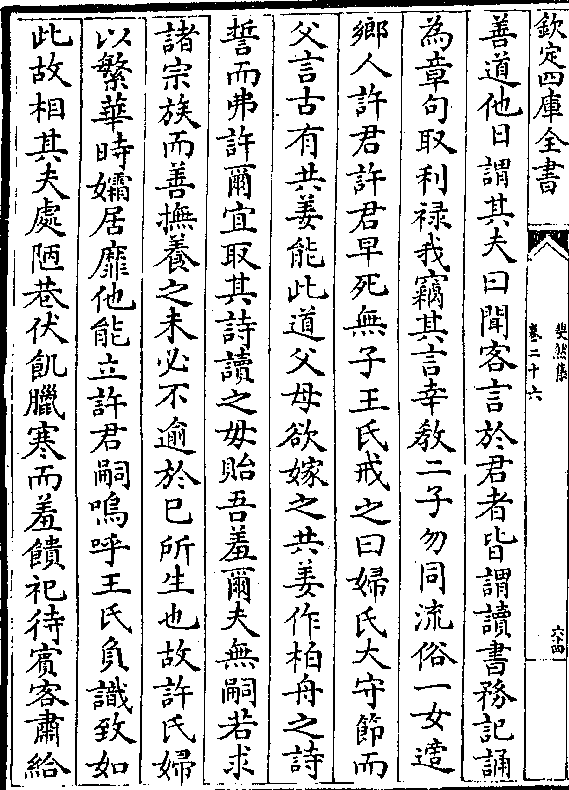 欽定四庫全書
斐然集
卷二十六
六四
善道他日謂其夫曰聞客言於君者皆謂讀書務記誦
為章句取利祿我竊其言幸教二子勿同流俗一女適
鄉人許君許君早死無子王氏戒之曰婦氏大守節而
父言古有共姜能此道父母欲嫁之共姜作柏舟之詩
誓而弗許爾宜取其詩讀之毋貽吾羞爾夫無嗣若求
諸宗族而善撫養之未必不逾於己所生也故許氏婦
以繁華時孀居靡他能立許君嗣嗚呼王氏負識致如
此故相其夫處陋巷伏飢臘寒而羞饋祀待賓客肅給